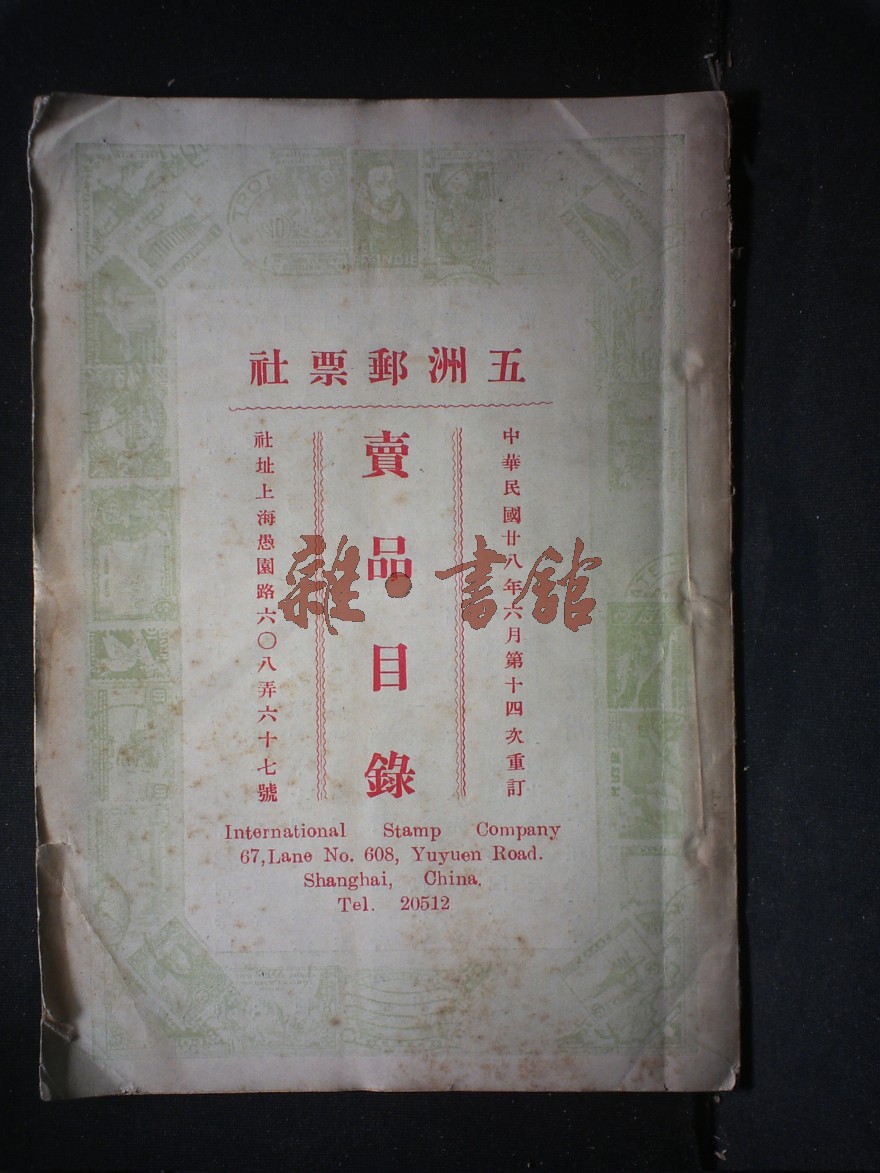 五洲郵票社
中華民國廿八年六月第十四次重訂
賣品目錄
社址上海愚園路六〇八弄六十七號
International Stamp Company
67,Lane No. 608, Yuyuen Road.
Shanghai, China.
Tel. 20512
雜·書館